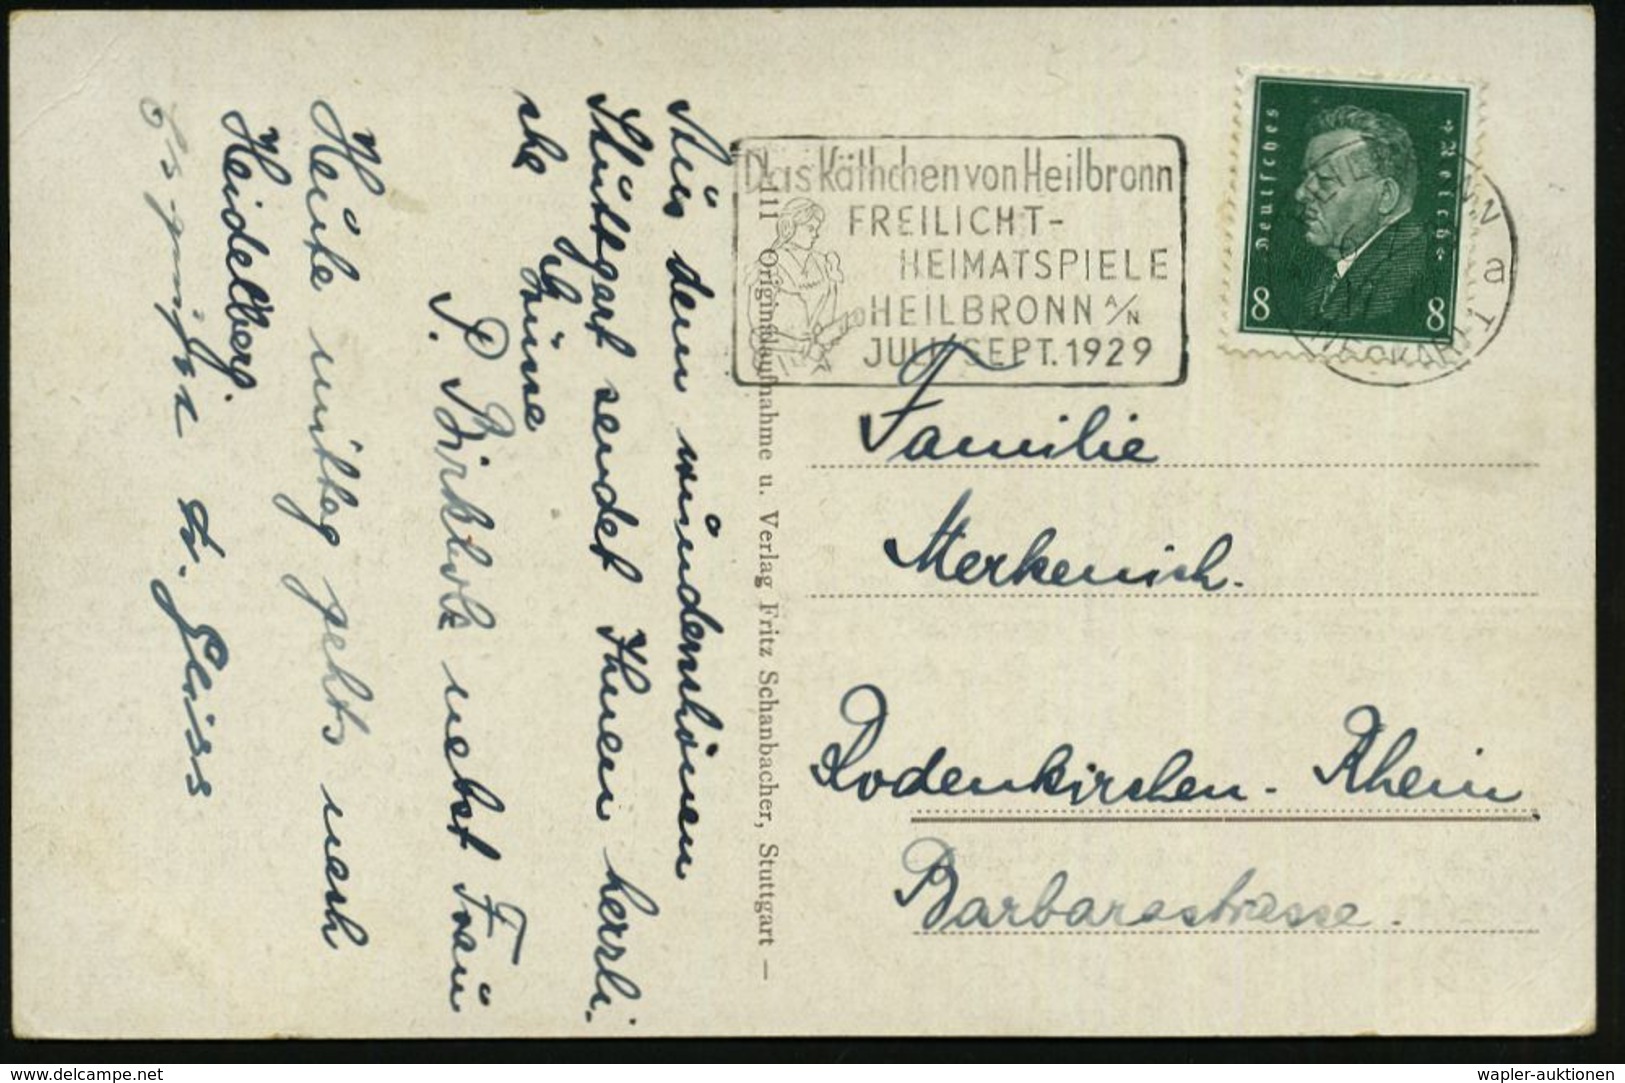 Aus dem wunderschönen
Stuttgart sendet Ihnen herrli.
che Grüsse
P. Birkholz nebst Frau
Heute mittag gehts nach
Heidelberg.
Es grüsst
111 Originalaufnahme u. Verlag Fritz Schanbacher, Stuttgart –
Das Käthchen von Heilbronn
FREILICHT-
HEIMATSPIELE
HEILBRONN A/N
JULI-SEPT. 1929
Deutsches Reich
8 8
a
Familie
Merkenich.
Rodenkirchen - Rhein
Barbarastrasse.
www.delcampe.net
wapler-auktionen